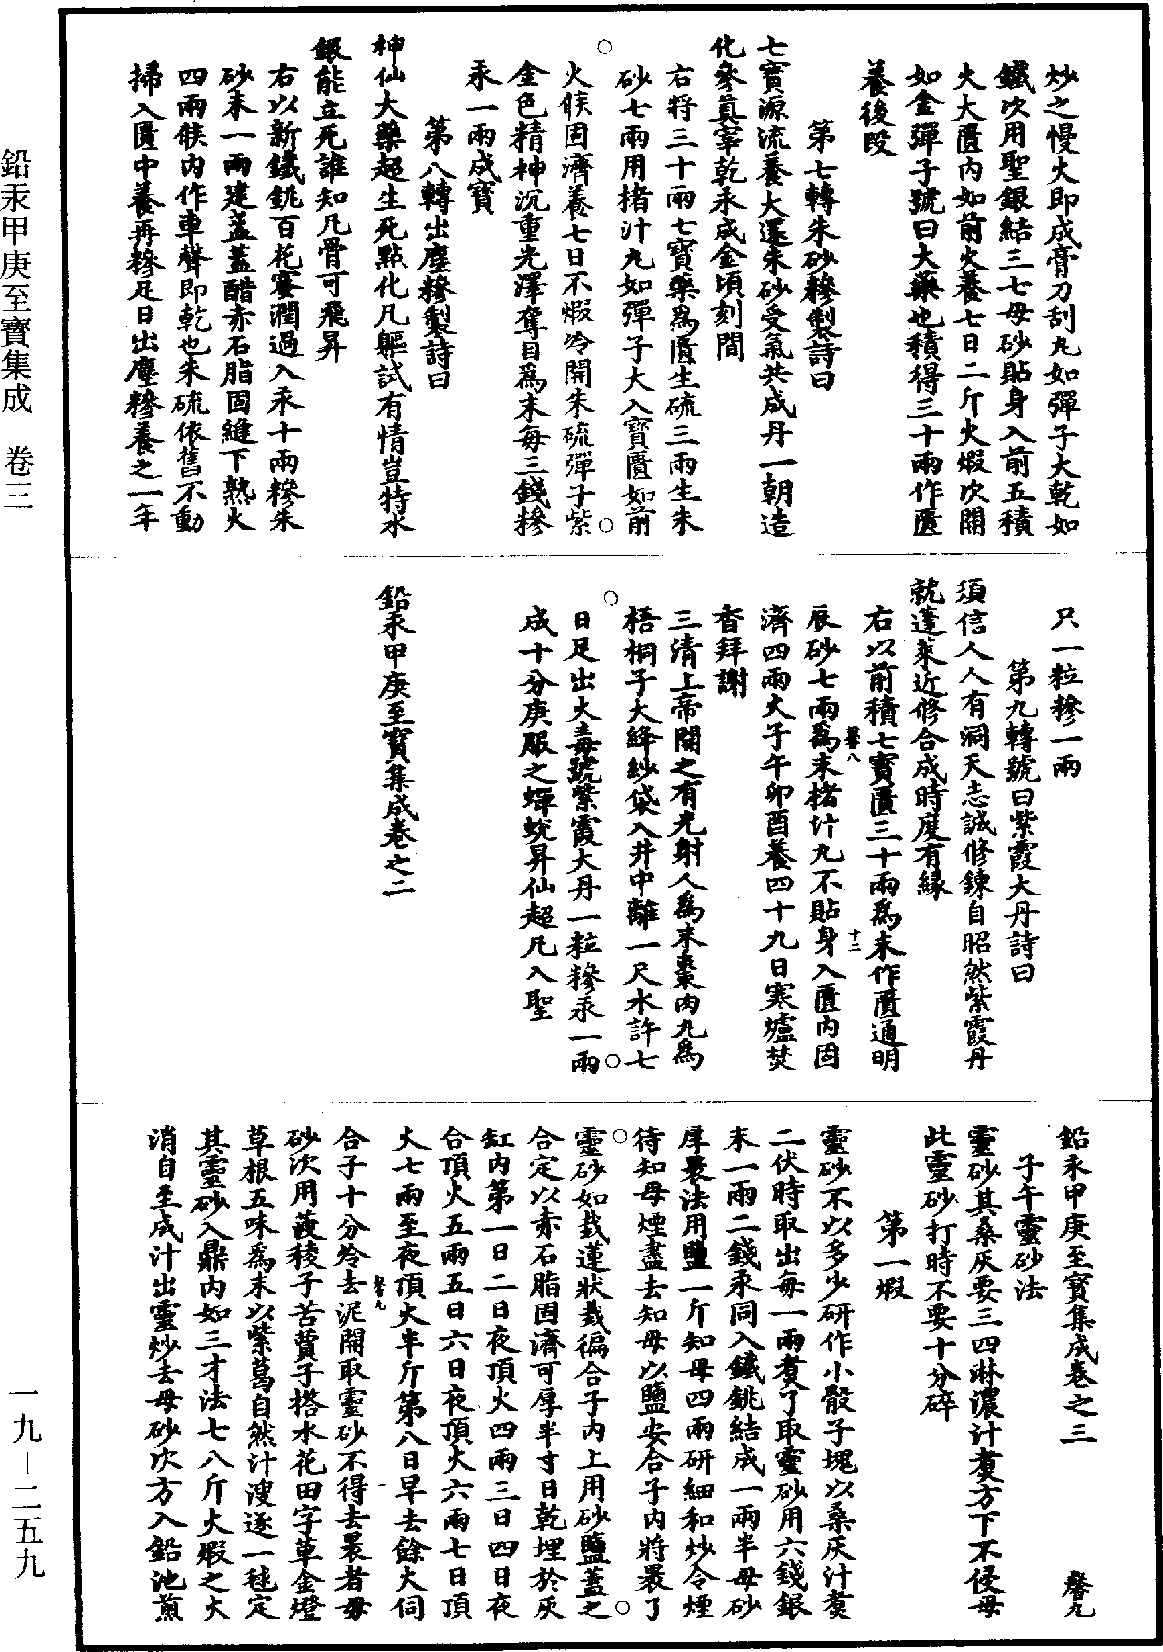 炒之慢火即成膏刀刮丸如彈子大乾如
鐵次用聖銀結三七母砂貼身入前五積
火大匱內如前火養七日二斤火煆次開
如金彈子號曰大藥也積得三十兩作匱
養後段
第七轉朱砂糝製詩曰
七寶源流養大還朱砂受氣共成丹一朝造
化參真宰乾汞成金頃刻間
右將三十兩七寶藥為匱生硫三兩生朱
砂七兩用楮汁丸如彈子大入寶匱如前
火候固濟養七日不煆冷開朱硫彈子紫
金色精神沉重光澤奪目為末每三錢糝
汞一兩成寶
第八轉出塵糝製詩曰
神仙大藥超生死點化凡軀試有情豈特水
銀能立死誰知凡骨可飛昇
右以新鐵銚百花蜜潤過入汞十兩糝朱
砂末一兩建盞蓋醋赤石脂固縫下熟火
四兩候內作車聲即乾也朱硫依舊不動
掃入匱中養再糝足日出塵糝養之一年
只一粒糝一兩
第九轉號曰紫霞大丹詩曰
須信人人有洞天志誠修鍊自昭然紫霞丹
就蓬萊近修合成時度有緣
右以前積七寶匱三十兩為末作匱通明
辰砂七兩為末楮汁丸不貼身入匱內固
濟四兩火子午卯酉養四十九日寒爐焚
香拜謝
三清上帝開之有光射人為末棗肉丸為
梧桐子大絳紗袋入井中離一尺水許七
日足出火毒號紫霞大丹一粒糝汞一兩
成十分庚服之蟬蛻昇仙超凡入聖
鉛汞甲庚至寶集成卷之二
鉛汞甲庚至寶集成卷之三 馨九
子午靈砂法
靈砂其桑灰要三四淋濃汁煑方下不侵母
此靈砂打時不要十分碎
第一煆
靈砂不以多少研作小骰子塊以桑灰汁煑
二伏時取出每一兩煑了取靈砂用六錢銀
末一兩二錢汞同入鐵銚結成一兩半母砂
厚裹法用鹽一斤知母四兩研細和炒令煙
待知母煙盡去知母以鹽安合子內將裹了
靈砂如栽蓮狀栽徧合子內上用砂鹽蓋之
合定以赤石脂固濟可厚半寸日乾埋於灰
缸內第一日二日夜頂火四兩三日四日夜
合頂火五兩五日六日夜頂火六兩七日頂
火七兩至夜頂火半斤第八日早去餘火伺
合子十分冷去泥開取靈砂不得去裹者母
砂次用菠稜子苦蕒子搭水花田字草金燈
草根五味為末以紫蒀自然汁溲逐一毬定
其靈砂入鼎內如三才法七八斤火煆之大
消自至成汁出靈炒去母砂次方入鉛池煎
鉛汞甲庚至寶集成 卷三
一九—二五九